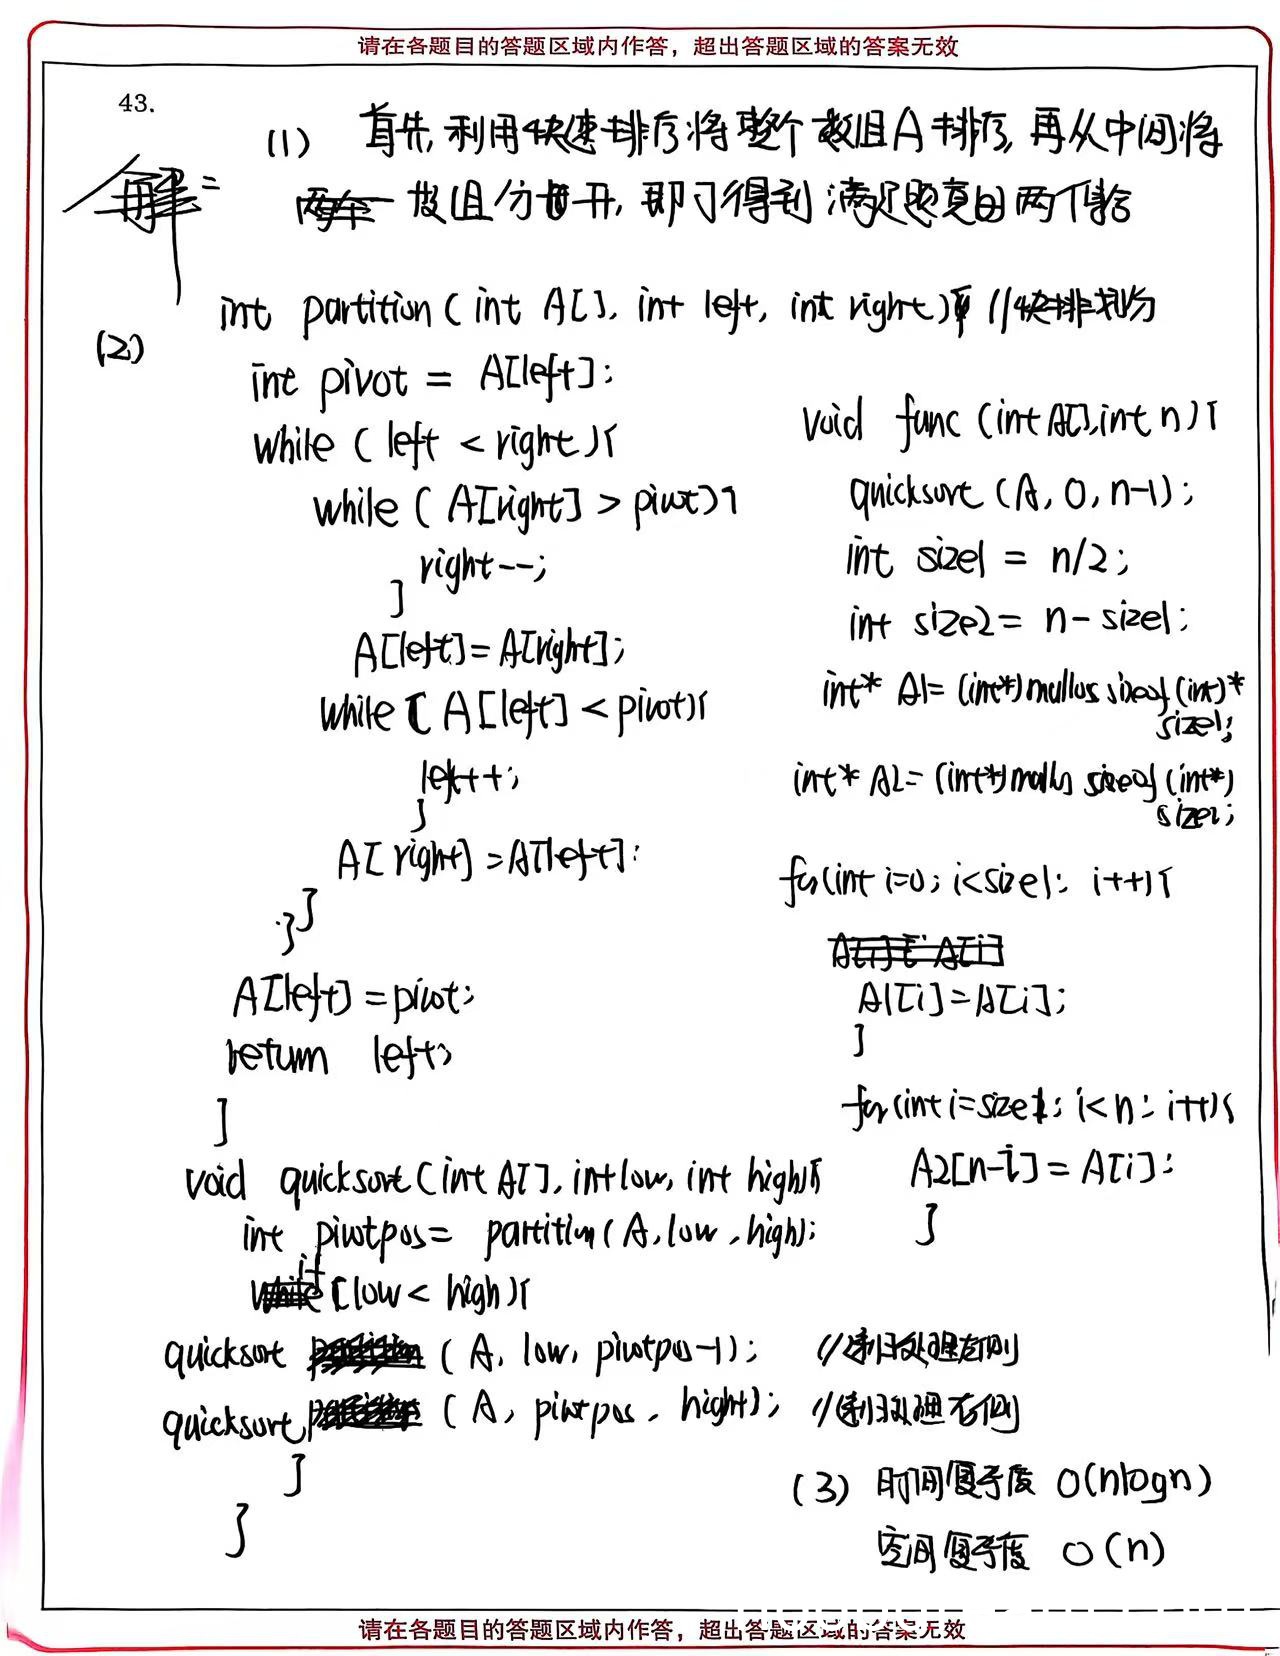 请在各题目的答题区域内作答，超出答题区域的答案无效
43.
解:
(1) 首先,利用快速排序将整个数组A排序,再从中间将
数组分开,即可得到满足题意的两个
(2)
int partition(int A[], int left, int right){ //快排划分
int pivot = A[left];
while (left < right){
while (A[right] > pivot){
right--;
}
A[left]=A[right];
while (A[left] < pivot){
left++;
}
A[right]=A[left];
}
}
A[left]=pivot;
return left;
}
void quicksort(int A[], int low, int high){
int pivotpos= partition(A,low,high);
if (low < high){
quicksort (A, low, pivotpos-1); //递归处理左侧
quicksort (A, pivotpos, hight); //递归处理右侧
}
}
void func (int A[],int n){
quicksort (A, 0, n-1);
int size1 = n/2;
int size2= n-size1;
int* A1= (int*)malloc sizeof(int)*
size1;
int* A2= (int*)malloc sizeof(int*)
size2;
for(int i=0; i<size1; i++){
A1[i]=A[i];
}
for(int i=size1; i<n; i++){
A2[n-i]=A[i];
}
(3) 时间复杂度 O(nlogn)
空间复杂度 O(n)
请在各题目的答题区域内作答，超出答题区域的答案无效